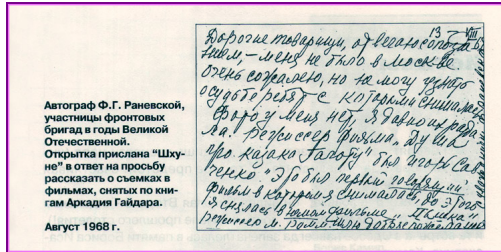 Автограф Ф.Г. Раневской,
участницы фронтовых
бригад в годы Великой
Отечественной.
Открытка прислана "Шху-
не" в ответ на просьбу
рассказать о съемках в
фильмах, снятых по кни-
гам Аркадия Гайдара.
Август 1968 г.
13 VIII
Дорогие товарищи, отвечаю с опозда
нием, – меня не было в Москве.
Очень сожалею, но не могу
судьбе ребят с которыми снималась
Фото у меня нет. Я давно их
ла. Режиссер фильма "Дума
про казака Голоту" был Игорь Сав
ченко. Это был первый говорящий
фильм в котором я снималась, до этого
я снялась в немом фильме "Пышка"
режиссер М. Ромм